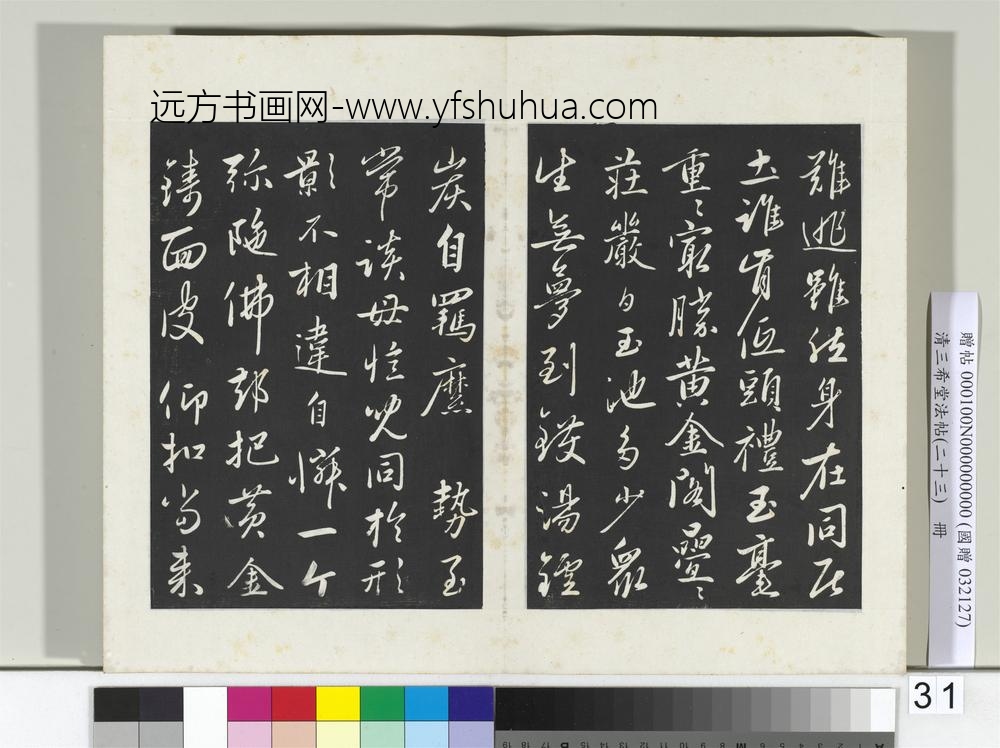 远方书画网-www.yfshuhua.com
難逃雖然身在同居
土誰肯低頭禮玉毫
重〻最勝黄金閣疊〻
莊嚴白玉池多少衆
生無夢到鑊湯鑪
炭自羈縻 勢至
常談母憶兒同於形
影不相違自憐一个
弥陁佛却把黄金
鑄面皮 仰扣當来
贈帖 000100N000000000 (國贈 032127)
清三希堂法帖(二十三) 冊
31